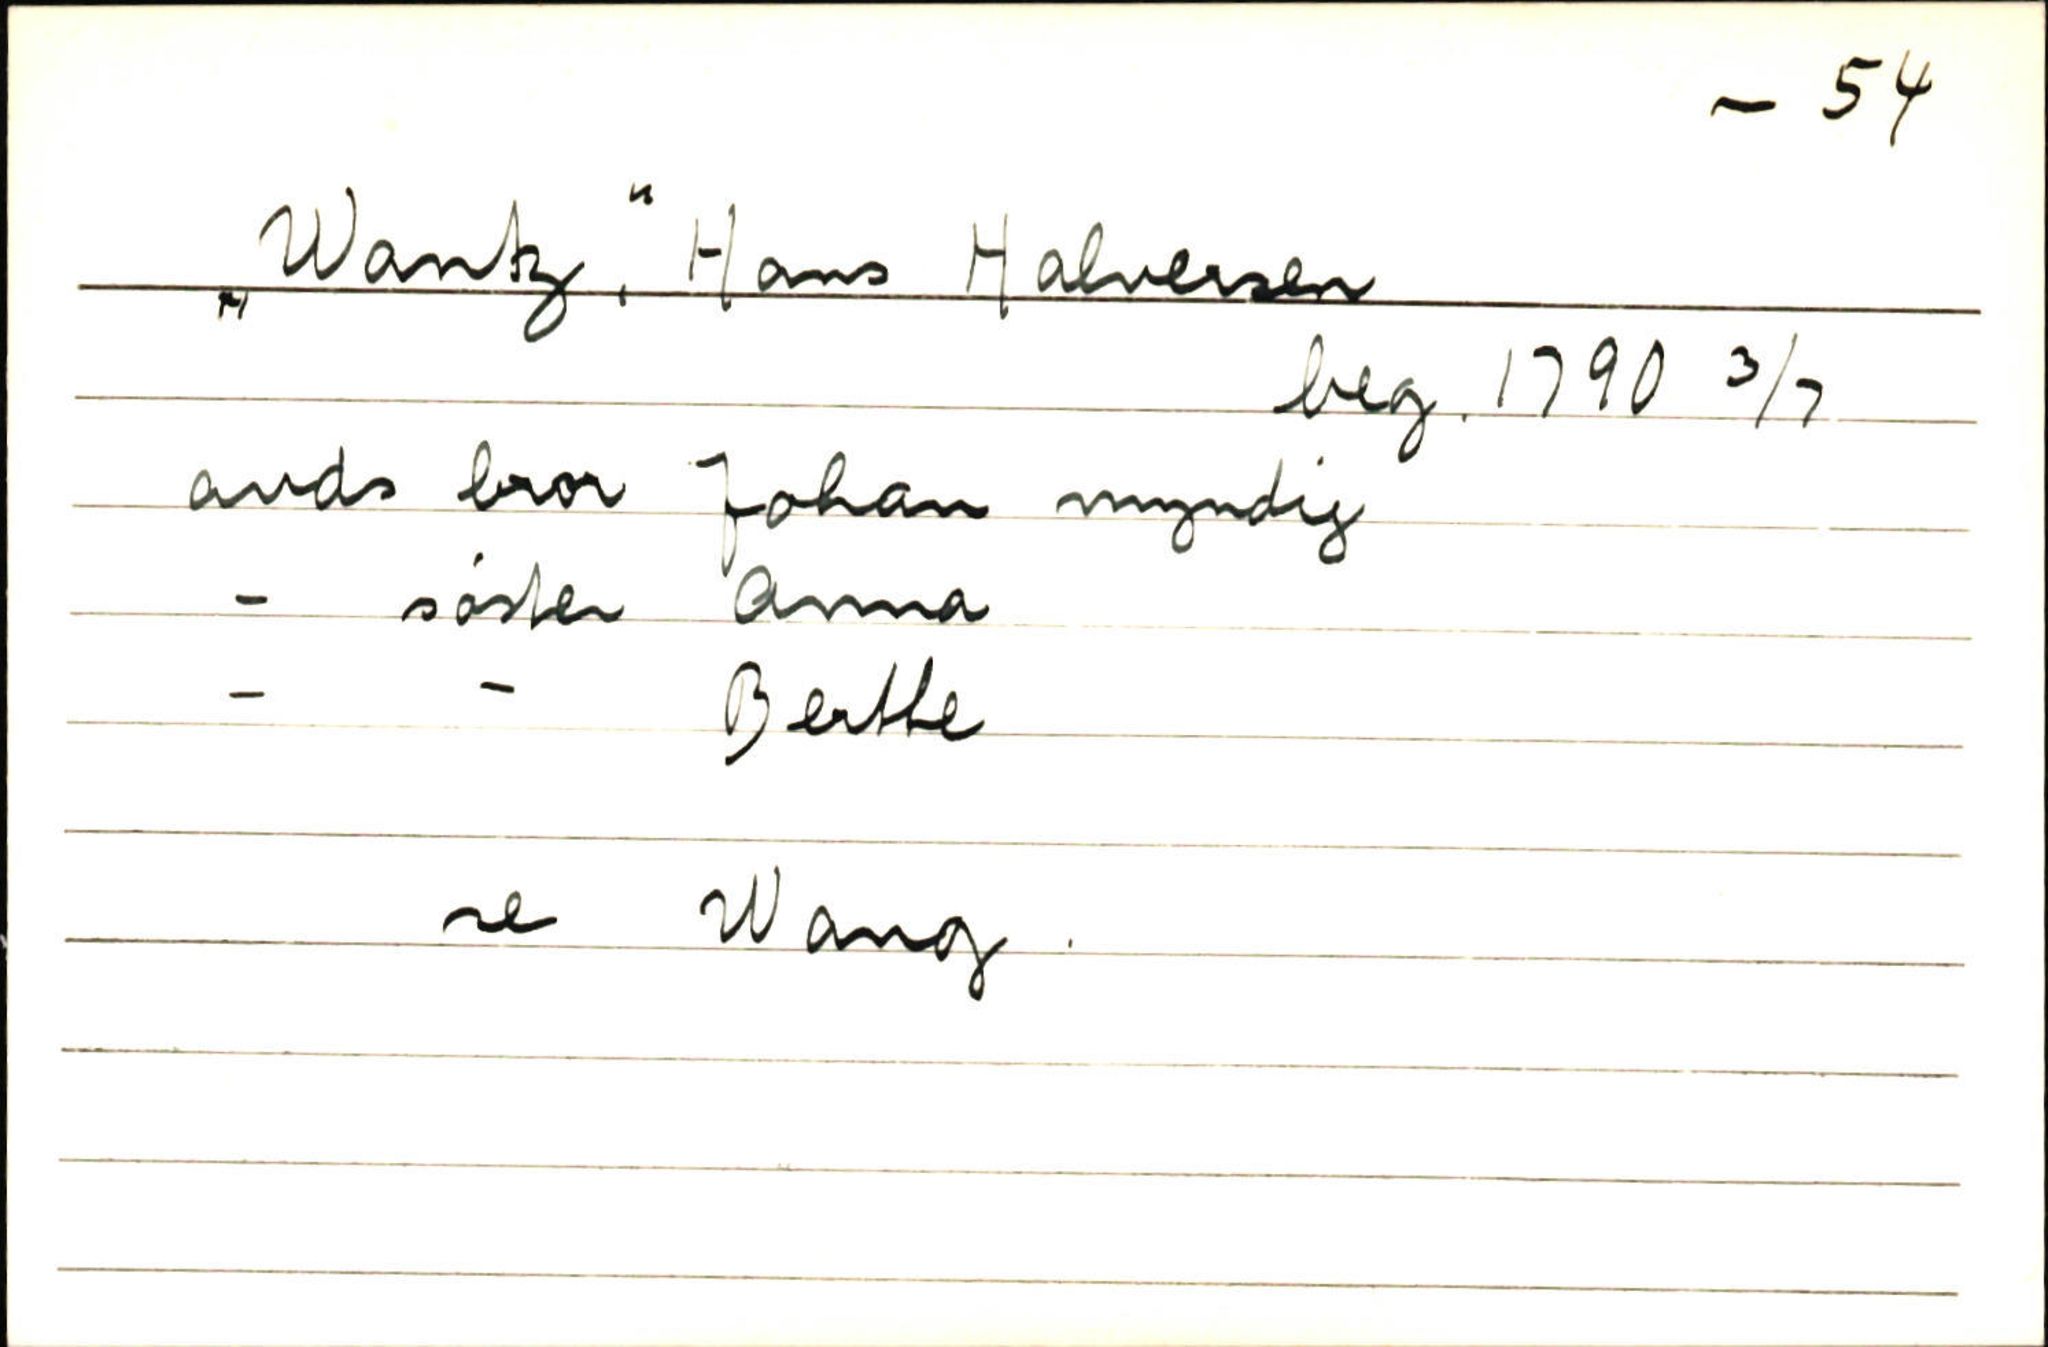 - 54
„Wantz,“ Hans Halversen
beg. 1790 3/7
avds bror Johan myndig
- søster Anna
- - Berthe
se Wang.